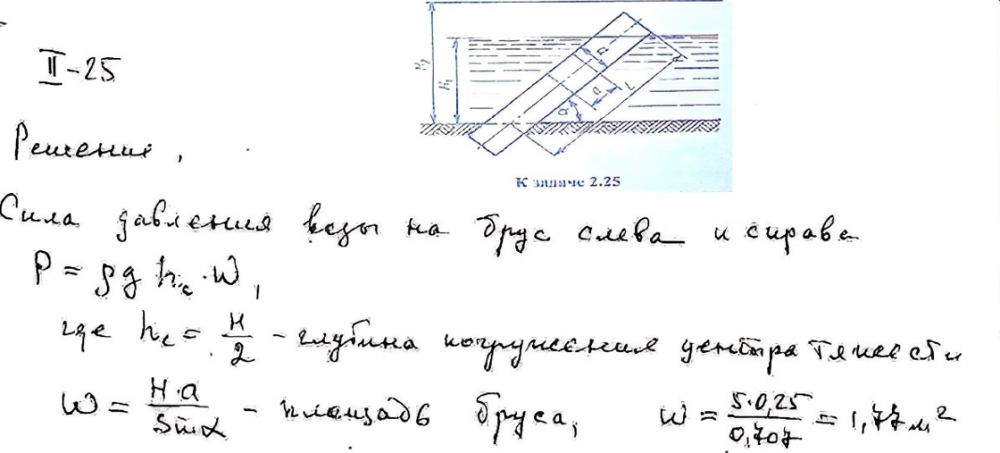 II-25
H₁ h₁ a a α L
К задаче 2.25
Решение,
Сила давления воды на брус слева и справа
P = ρg h_c · W,
где h_c = H/2 - глубина погружения центра тяжести
W = H·a/Sinα - площадь бруса, W = 5·0,25/0,707 = 1,77 м²